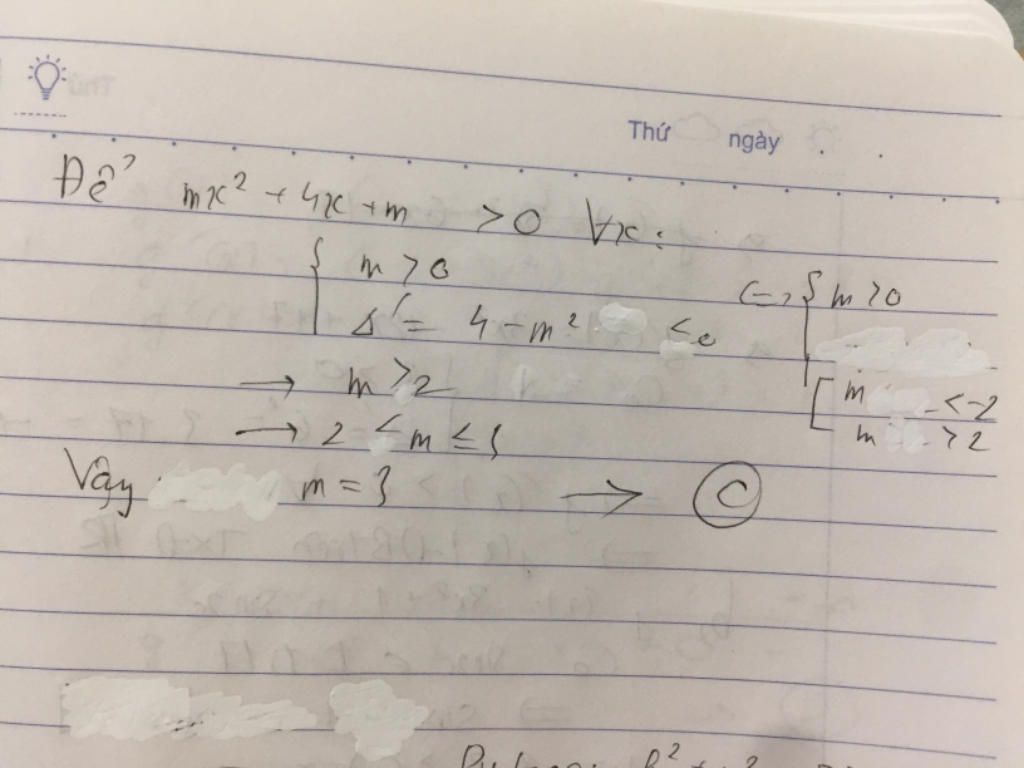 Thứ ngày
Để mx² + 4x + m > 0 ∀x:
{ m > 0
Δ' = 4 - m² < 0
<=> { m > 0
[ m < -2
m > 2
→ m > 2
→ 2 < m ≤
Vậy m = 3 → C